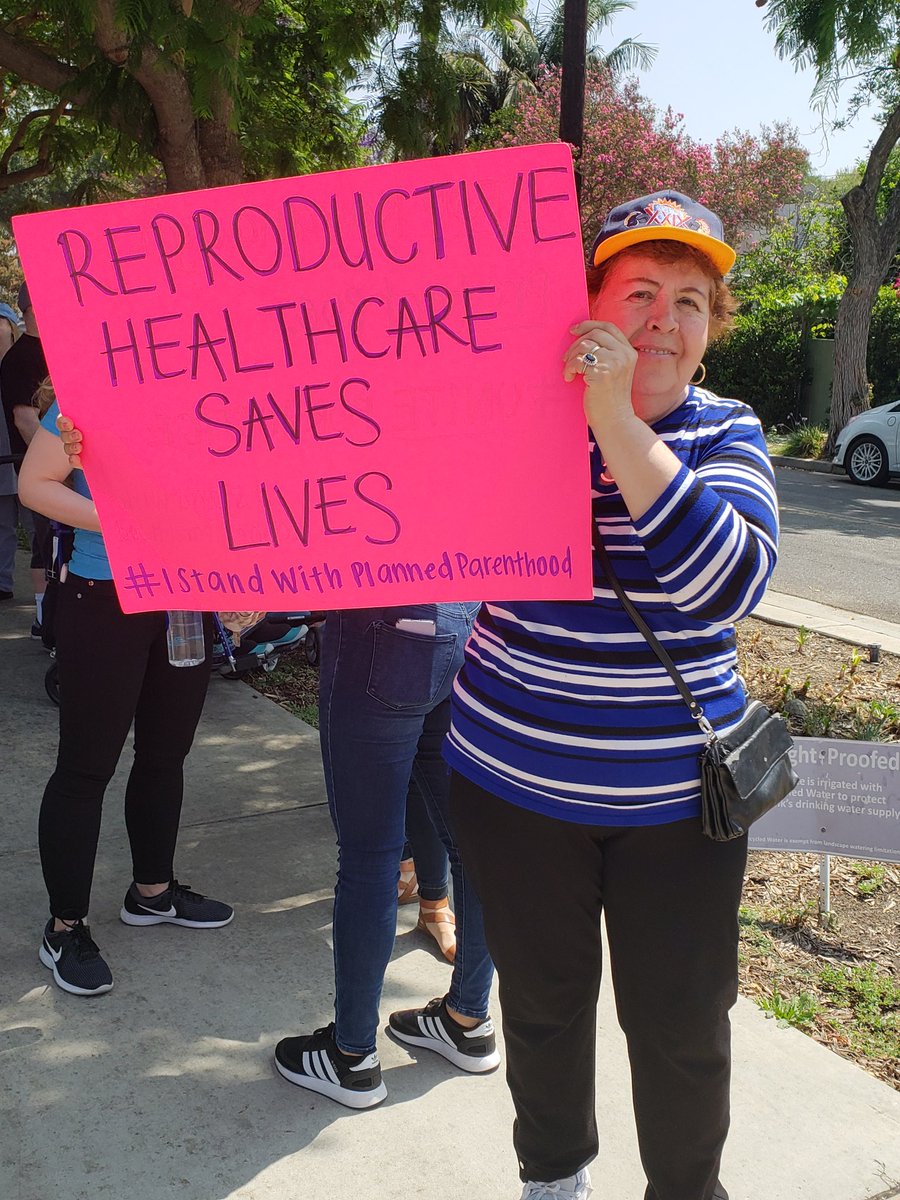 REPRODUCTIVE
HEALTHCARE
SAVES
LIVES
#IStandWithPlannedParenthood
XXIX
ght-Proofed
e is irrigated with
ed Water to protect
k's drinking water supply
cycled Water is exempt from landscape watering limitation